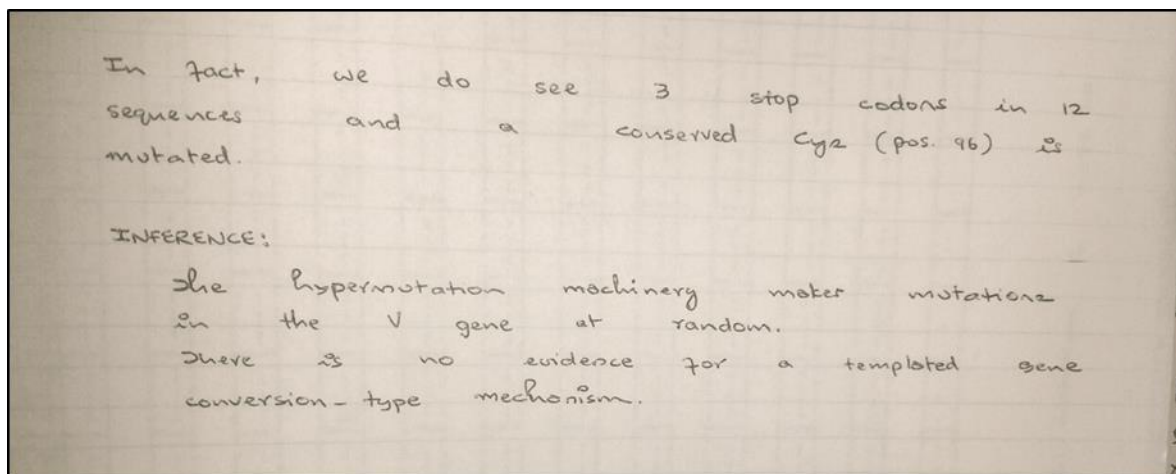 In fact, we do see 3 stop codons in 12
sequences and a conserved Cys (pos. 96) is
mutated.
INFERENCE:
The hypermutation machinery makes mutations
in the V gene at random.
There is no evidence for a templated gene
conversion-type mechanism.